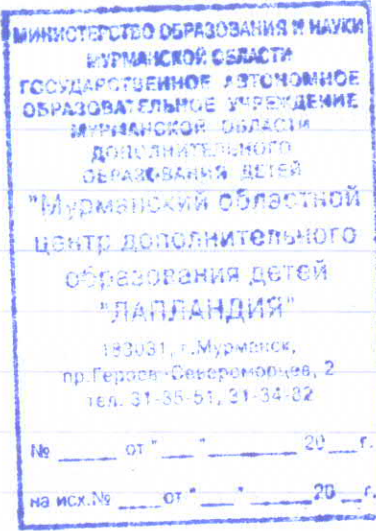 МИНИСТЕРСТВО ОБРАЗОВАНИЯ И НАУКИ
МУРМАНСКОЙ ОБЛАСТИ
ГОСУДАРСТВЕННОЕ АВТОНОМНОЕ
ОБРАЗОВАТЕЛЬНОЕ УЧРЕЖДЕНИЕ
МУРМАНСКОЙ ОБЛАСТИ
ДОПОЛНИТЕЛЬНОГО
ОБРАЗОВАНИЯ ДЕТЕЙ
"Мурманский областной
центр дополнительного
образования детей
"ЛАПЛАНДИЯ"
183031, г.Мурманск,
пр.Героев-Североморцев, 2
тел. 31-35-51, 31-34-82
№ ______ от "___"________ 20___г.
на исх.№ ____от "___"________20___г.